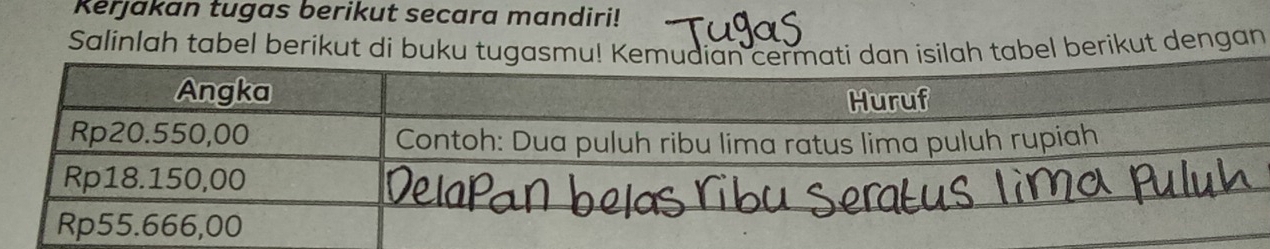 Kerjakan tugas berikut secara mandiri!
Tugas
Salinlah tabel berikut di buku tugasmu! Kemudian cermati dan isilah tabel berikut dengan
Angka Huruf
Rp20.550,00 Contoh: Dua puluh ribu lima ratus lima puluh rupiah
Rp18.150,00 Delapan belas ribu seratus lima puluh
Rp55.666,00